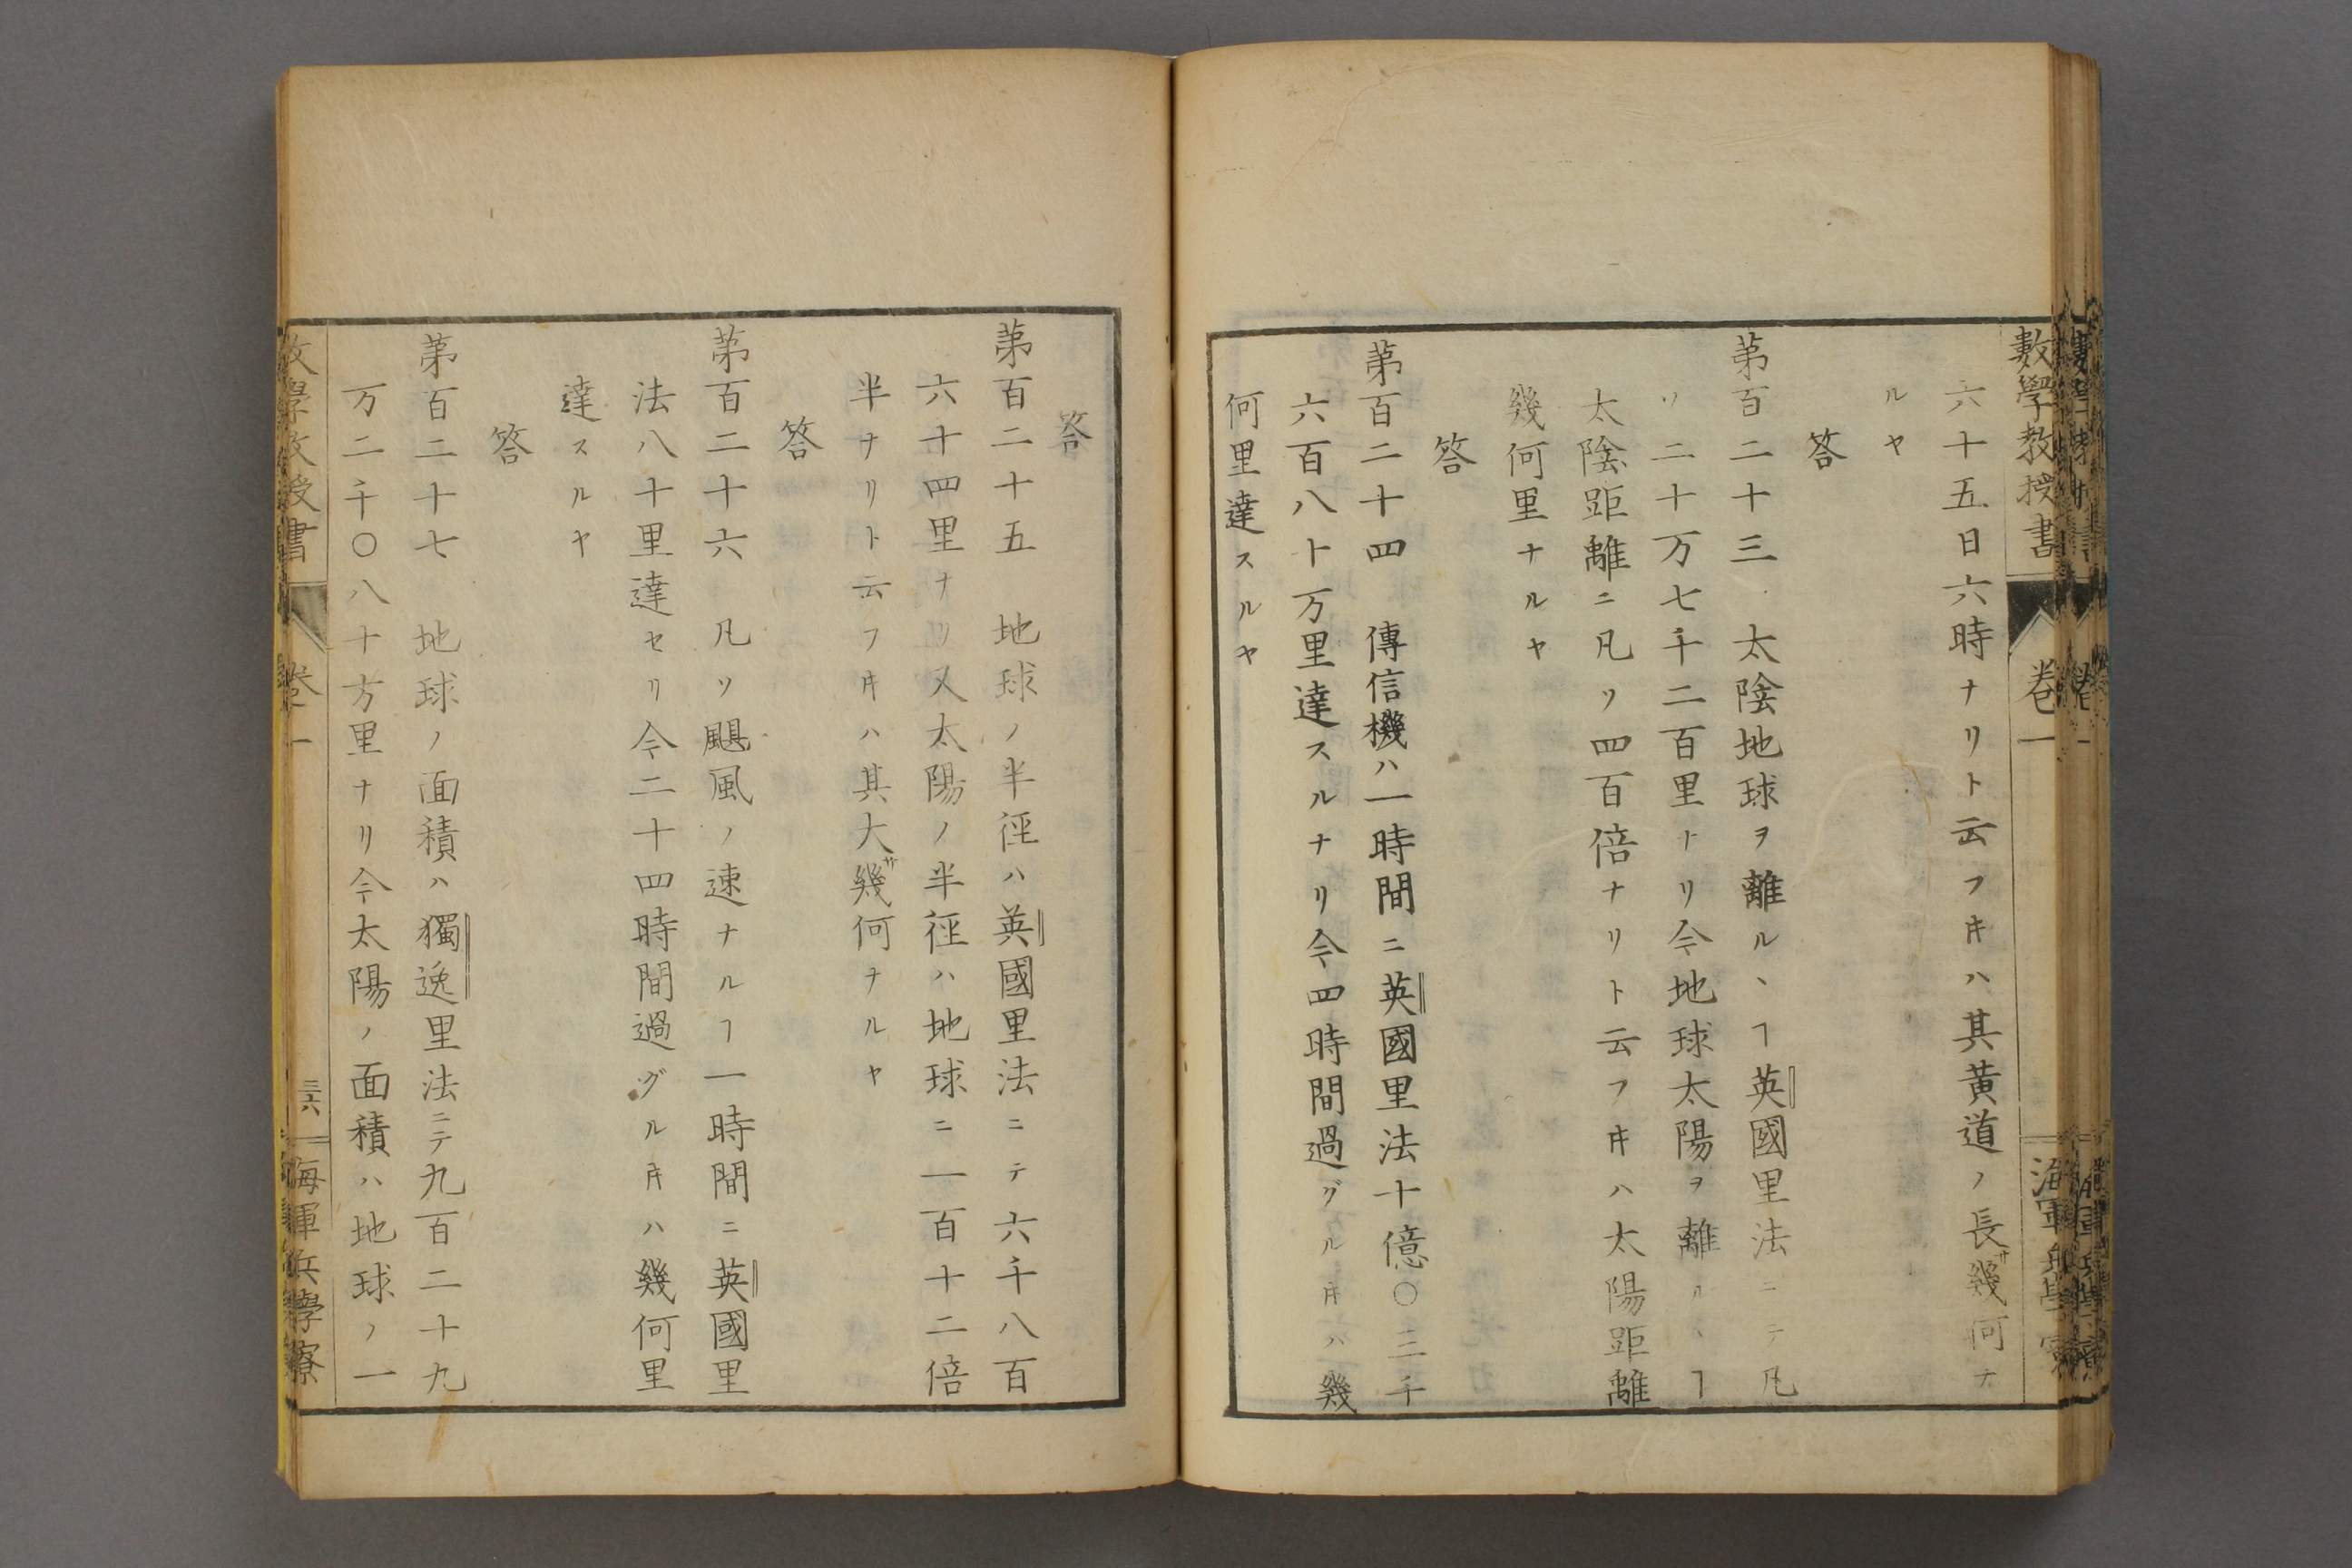 數學教授書 卷一 海軍兵學寮
六十五日六時ナリト云フ𪜈ハ其黄道ノ長サ幾何ナ
ルヤ
答
第百二十三 太陰地球ヲ離ルヽヿ英國里法ニテ凡
ソ二十万七千二百里トリ今地球太陽ヲ離ルヽヿ
太陰距離ニ凡ソ四百倍ナリト云フ𪜈ハ太陽距離
幾何里ナルヤ
答
第百二十四 傳信機ハ一時間ニ英國里法十億〇三千
六百八十万里達スルナリ今四時間過グル𪜈ハ幾
何里達スルヤ
答
第百二十五 地球ノ半徑ハ英國里法ニテ六千八百
六十四里ナリ又太陽ノ半徑ハ地球ニ一百十二倍
半ナリト云フ𪜈ハ其大サ幾何ナルヤ
答
第百二十六 凡ソ颶風ノ速ナルヿ一時間ニ英國里
法八十里達セリ今二十四時間過グル𪜈ハ幾何里
達スルヤ
答
第百二十七 地球ノ面積ハ獨逸里法ニテ九百二十九
万二千〇八十方里ナリ今太陽ノ面積ハ地球ノ一
數學教授書 卷一 三六 海軍兵學寮